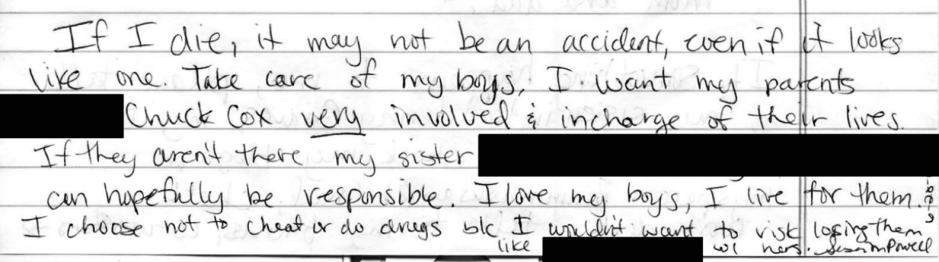 If I die, it may not be an accident, even if it looks
like one. Take care of my boys. I want my parents
Chuck Cox very involved & incharge of their lives.
If they aren't there my sister
can hopefully be responsible. I love my boys, I live for them.
I choose not to cheat or do drugs b/c I wouldn't want to risk losing them
like w/ hers. Susan Powell